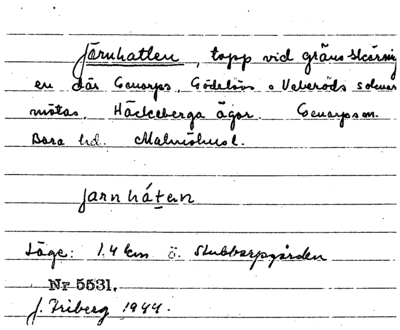 Järnhatten, topp vid gräns skärning
en där Genarps, Gödelövs o Veberöds socknar
mötas, Häckeberga ägor. Genarps sn.
Bara hd. Malmöhus l.
jarnhátən
Läge: 1,4 km ö. Stubbarpgården
Nr 5531.
J. Friberg 1944.